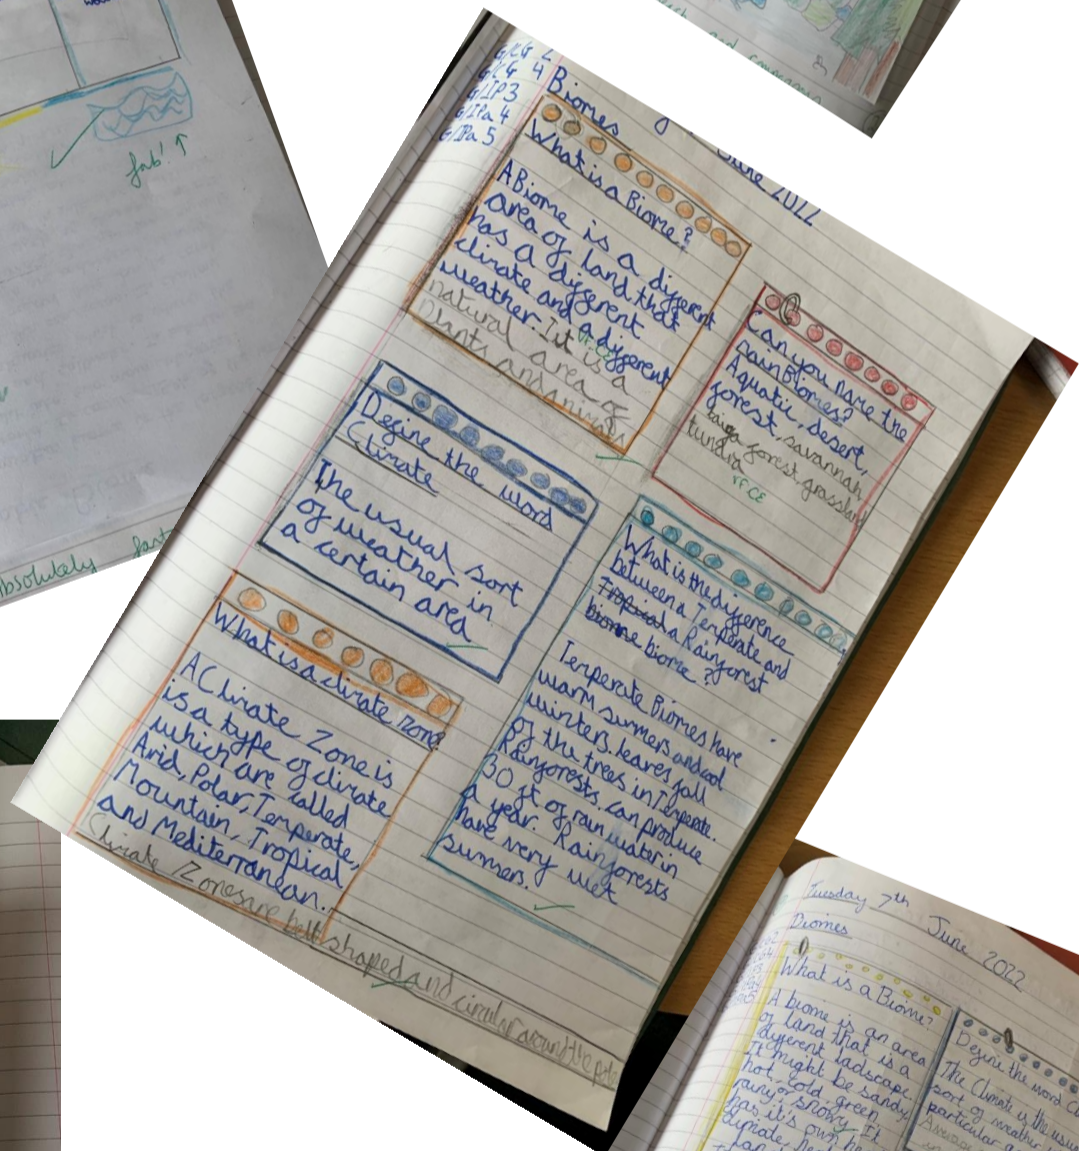 fab! ↑
absolutely fast
G/CG 4
G/IP3
G/IPa 4
G/IPa 5
Biomes
June 2022
What is a Biome?
A Biome is a different
area of land that
has a different
climate and a different
weather. It is a
natural area of
Plants and animals
Can you name the
main Biomes?
Aquatic, desert,
forest, savannah,
taiga forest, grassland
tundra
VFCE
Define the word
Climate
The usual sort
of weather in
a certain area
What is the difference
between a Temperate and
Tropical a Rainforest
biome biome?
Temperate Biomes have
warm summers and cool
winters. leaves fall
of the trees in Temperate.
Rainforests can produce
30 ft of rain water in
a year. Rainforests
have very wet
summers.
What is a climate zone
A Climate Zone is
is a type of climate
which are called
Arid, Polar, Temperate,
Mountain, Tropical
and Mediterranean.
Climate Zones are belt shaped and circular around the pole
Tuesday 7th June 2022
Biomes
What is a Biome?
A biome is an area
of land that is a
different ladscape.
It might be sandy,
hot, cold, green
rainy or snowy. It
has it's own
climate,
Define the word
The Climate is the usu
sort of weather
particular a